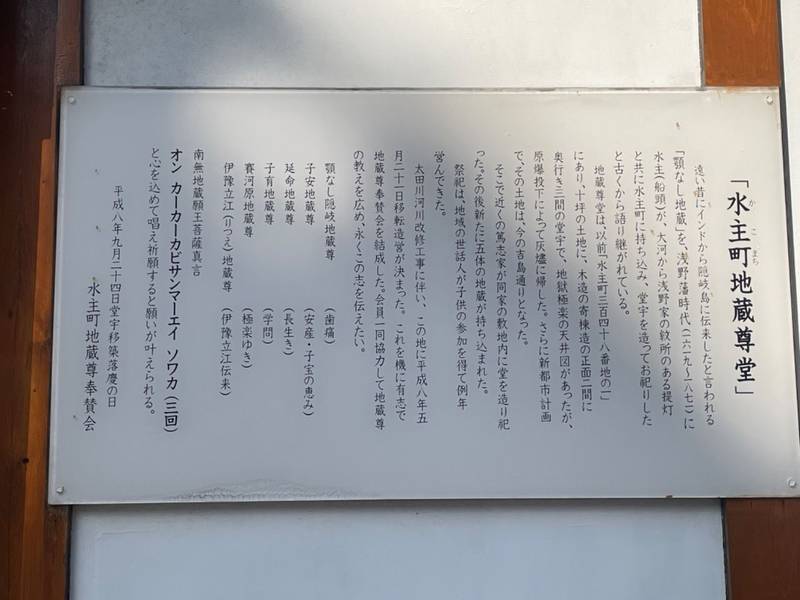 「水主町地蔵尊堂」
かこまち
遠い昔にインドから隠岐島に伝来したと言われる
「顎なし地蔵」を、浅野藩時代(一六一九〜一八七一)に
水主(船頭)が、大河から浅野家の紋所のある提灯
と共に水主町に持ち込み、堂宇を造ってお祀りした
と古くから語り継がれている。
地蔵尊堂は、以前「水主町三百四十八番地の一」
にあり、十坪の土地に、木造の寄棟造の正面二間に
奥行き三間の堂宇で、地獄極楽の天井図があったが、
原爆投下によって灰燼に帰した。さらに新都市計画
で、その土地は、今の吉島通りとなった。
そこで近くの篤志家が同家の敷地内に堂を造り祀
った。その後新たに五体の地蔵が持ち込まれた。
祭祀は、地域の世話人が子供の参加を得て例年
営んできた。
太田川河川改修工事に伴い、この地に平成八年五
月二十一日移転造営が決まった。これを機に有志で
地蔵尊奉賛会を結成した。会員一同協力して地蔵尊
の教えを広め、永くこの志を伝えたい。
顎なし隠岐地蔵尊 (歯痛)
子安地蔵尊 (安産・子宝の恵み)
延命地蔵尊 (長生き)
子育地蔵尊 (学問)
賽河原地蔵尊 (極楽ゆき)
伊豫立江(りつえ)地蔵尊 (伊豫立江伝来)
南無地蔵願王菩薩真言
オン カーカーカビサンマーエイ ソワカ(三回)
と心を込めて唱え祈願すると願いが叶えられる。
平成八年九月二十四日堂宇移築落慶の日
水主町地蔵尊奉賛会